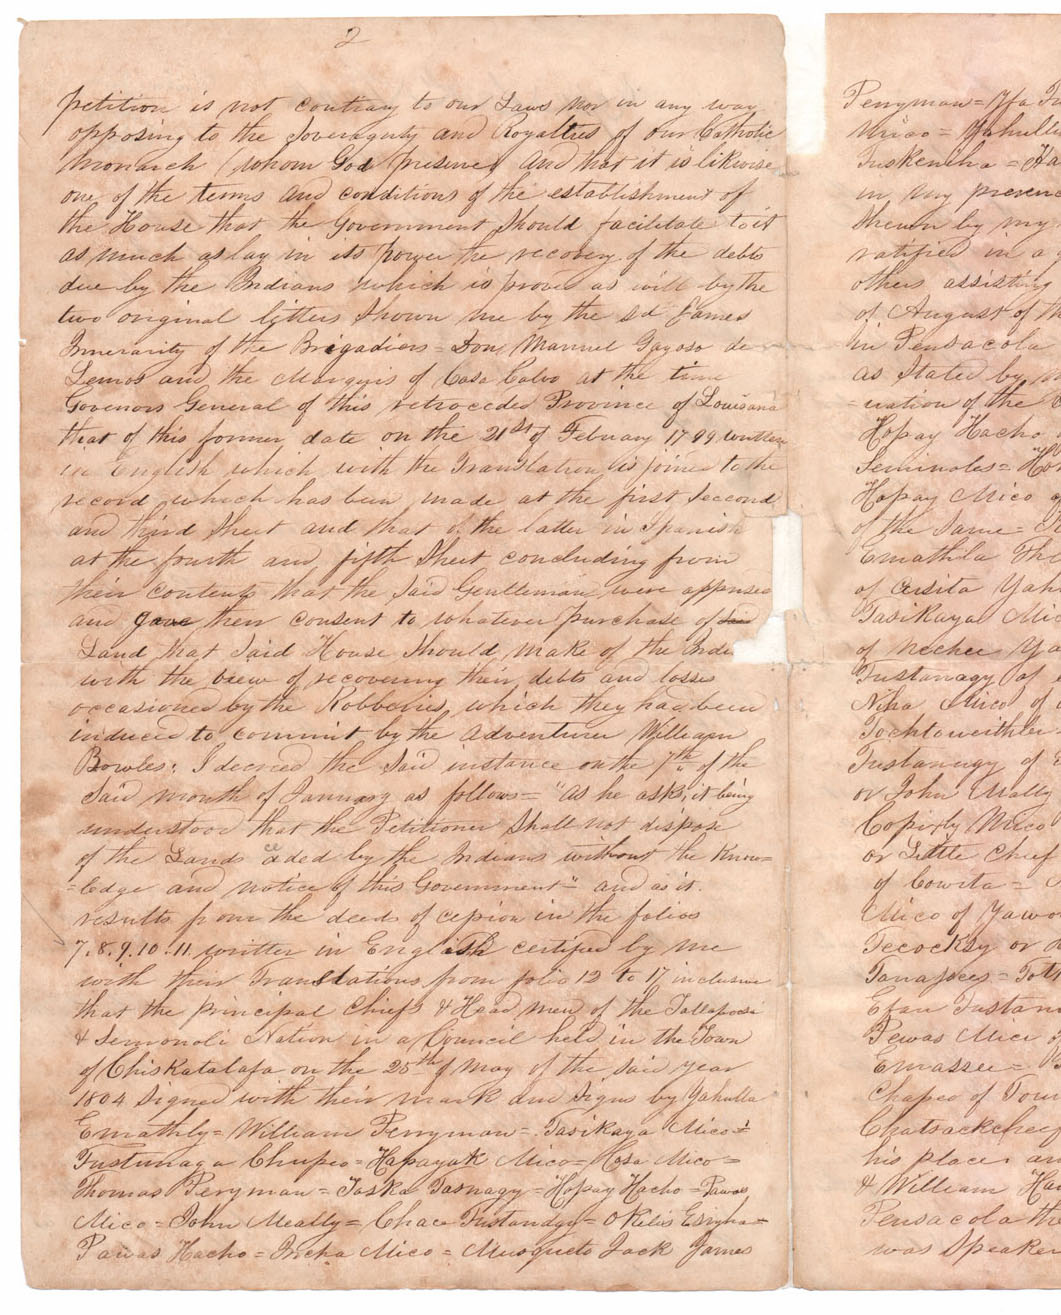 2
petition is not contrary to our Laws nor in any way
opposing to the Sovereignty and Royalties of our Catholic
Monarch (whom God preserve) and that it is likewise
one of the terms and conditions of the establishment of
the House that the Government Should facilitate to it
as much as lay in its power the recovery of the debts
due by the Indians which is proved as will by the
two original letters Shown me by the sd James
Innerarity of the Brigadiers = Don Manuel Gayoso de
Lemos and the Marquis of Casa Calvo at the time
Govenors General of this retroceded Province of Louisiana
that of this former date on the 21st of February 1799 written
in English which with the Translation is joined to the
record which has been made at the first Second
and third Sheet and that of the latter in Spanish
at the fourth and fifth Sheet concluding from
their contents that the Said Gentleman were apprised
and gave their consent to whatever purchase of
Land that Said House Should make of the Inde
with the view of recovering their debts and losses
occasioned by the Robberies, which they had been
induced to commit by the adventurer William
Bowles; I decreed the Said instance on the 7th of the
Said month of January as follows = "As he asks, it being
understood that the Petitioner Shall not dispose
of the Lands ceded by the Indians without the Know=
=ledge and notice of this Government" and as it
results from the deeds of cession in the folios
7. 8. 9. 10. 11. written in English certified by me
with their Translations from folio 12 to 17 inclusive
that the principal Chiefs & Head men of the Tallapoosi
& Semonoli Nation in a Council held in the Town
of Chiskatalafa on the 25th of May of the Said year
1804 Signed with their mark and Signs by Yahulla
Emathly = William Perryman = Tasikaya Mico =
Tustunaga Chupco = Hapayak Mico = Hosa Mico =
Thomas Perryman = Taska Tasnagy = Hopay Hacho = Pawas
Mico = John Meally = Chace Tustanagy = Okilis Esnyha =
Pawas Hacho = Incha Mico = Musqueto Jack James
Perryman = Yfa
Mico = Yahull
Tuskeniha = Ha
in my presenc
therein by my
ratified in a
others assisting
of August of th
in Pensacola
as Stated by
=uation of the
Hopay Hacho
Seminoles = Ho
Hopay Mico of
of the Same =
Emathla Th
of Cusita Yah
Tasikaya Mic
of nechee Ya
Tustanagy of
Niha Mico of
Tochtoweithler
Tustanagy of
or John Meally
Copixly Mico
or Little Chief
of Cowita =
Mico of Yawo
Tecocksy or
Tanassees = Tot
Efau Tustan
Pewas Mico of
Emassee =
Chapco of Tow
Chatsackchee
his place and
& William Ha
Pensacola th
was Speaker